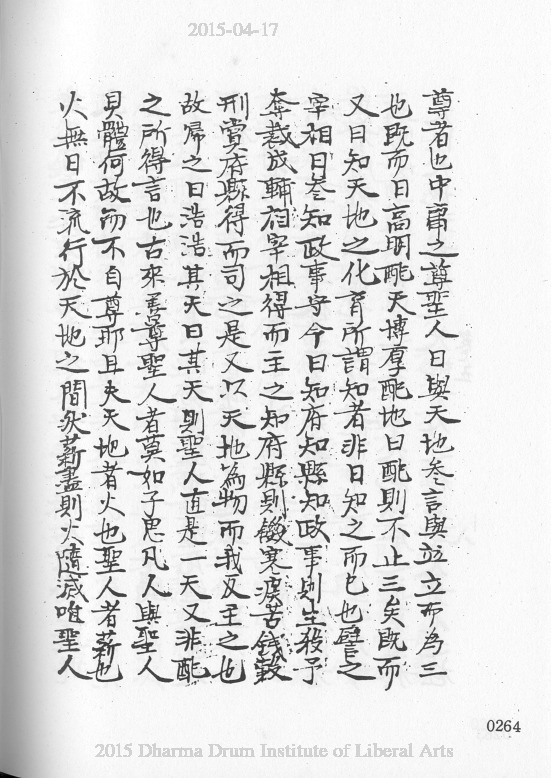 2015-04-17
尊者也中庸之尊聖人曰與天地叅言與並立而為三
也既而曰高明配天博厚配地曰配則不止三矣既而
又曰知天地之化育所謂知者非曰知之而已也譬之
宰相曰叅知政事守令曰知府知縣知政事則生殺予
奪裁成輔相宰相得而主之知府縣則饑寒疾苦錢穀
刑賞府縣得而司之是又以天地為物而我反主之也
故歸之曰浩浩其天曰其天則聖人直是一天又非配
之所得言也古來善尊聖人者莫如子思凡人與聖人
具體何故而不自尊耶且夫天地者火也聖人者薪也
火無日不流行於天地之間然薪盡則火隨滅唯聖人
0264
2015 Dharma Drum Institute of Liberal Arts